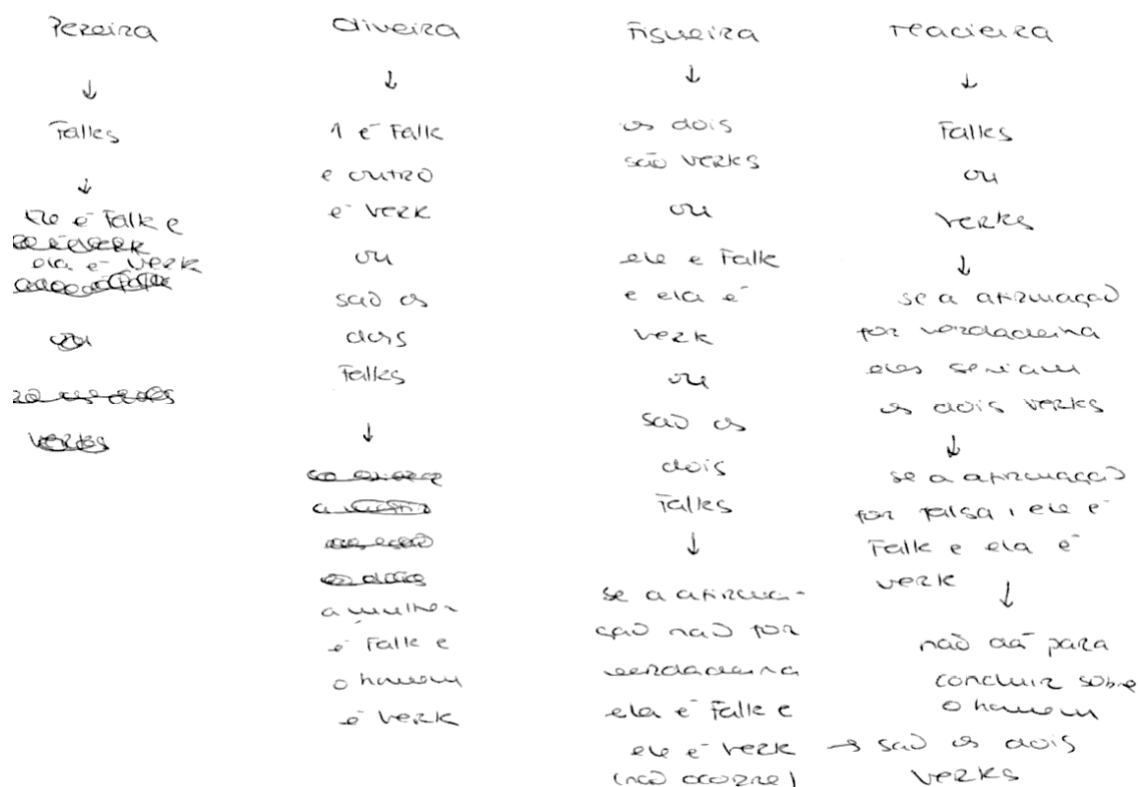 Pereira
↓
Falks
↓
ele é Falk e
ela é verk
ou
Oliveira
↓
1 é Falk
e outro
é verk
ou
são os
dois
Falks
↓
a mulher
é Falk e
o homem
é verk
Figueira
↓
os dois
são verks
ou
ele é Falk
e ela é
verk
ou
são os
dois
Falks
↓
se a afirma-
ção não for
verdadeira
ela é Falk e
ele é verk → são os dois
(não ocorre) verks
Macieira
↓
Falks
ou
verks
↓
se a afirmação
for verdadeira
eles seriam
os dois verks
↓
se a afirmação
for falsa, ele é
Falk e ela é
verk ↓
não dá para
concluir sobre
o homem